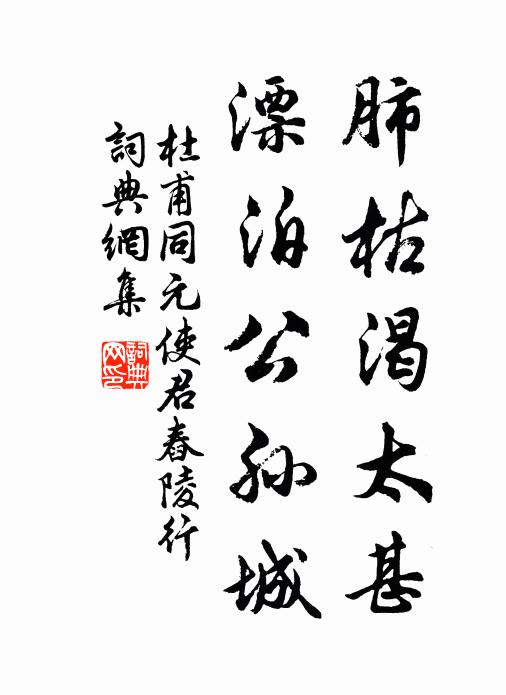 肺枯渴太甚
漂泊公孙城
杜甫同元使君舂陵行
詞典網集
詞典網印